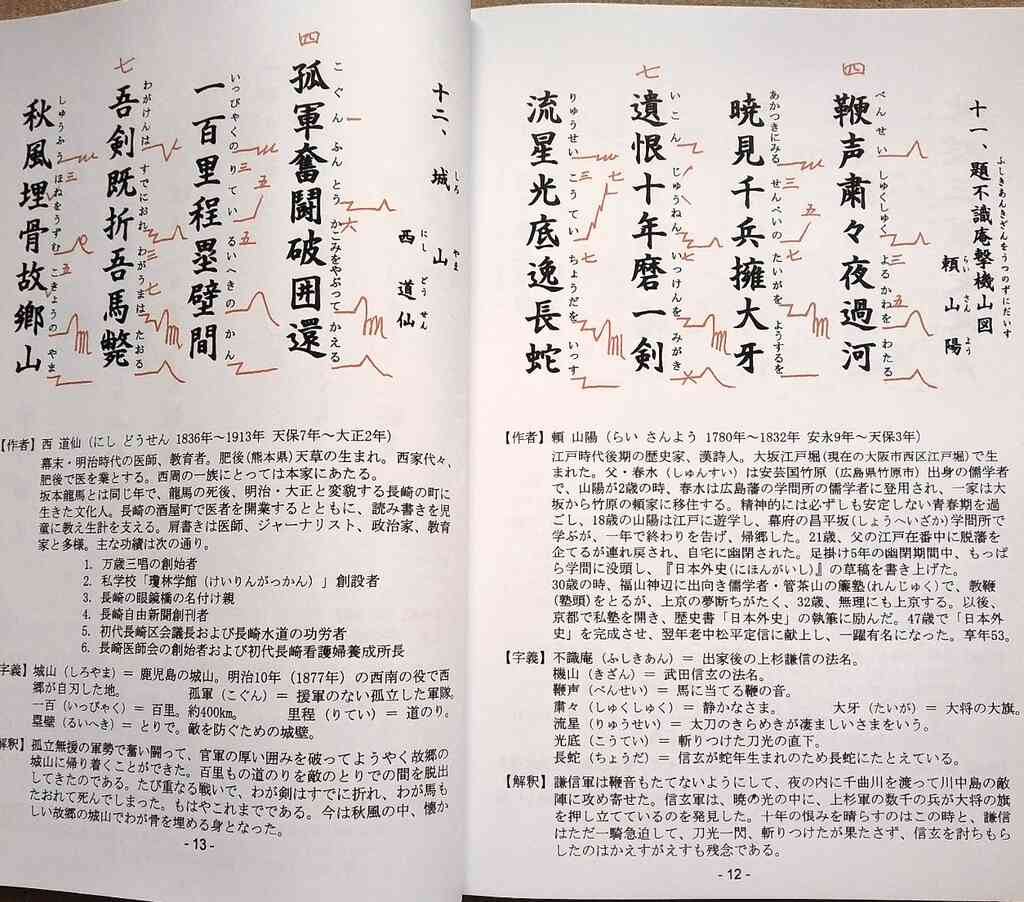 十一、題不識庵撃機山図
ふしきあんきざんをうつのずにだいす
頼山陽
らいさんよう
四
鞭声粛々夜過河
べんせい しゅくしゅく よるかわを わたる
三
五
暁見千兵擁大牙
あかつきにみる せんぺいの たいがを ようするを
三
五
七
七
遺恨十年磨一剣
いこん じゅうねん いっけんを みがき
七
流星光底逸長蛇
りゅうせい こうてい ちょうだを いっす
三
七
七
【作者】頼 山陽（らい さんよう 1780年～1832年 安永9年～天保3年）
江戸時代後期の歴史家、漢詩人。大坂江戸堀（現在の大阪市西区江戸堀）で生
まれた。父・春水（しゅんすい）は安芸国竹原（広島県竹原市）出身の儒学者
で、山陽が2歳の時、春水は広島藩の学問所の儒学者に登用され、一家は大
坂から竹原の頼家に移住する。精神的には必ずしも安定しない青春期を過
ごし、18歳の山陽は江戸に遊学し、幕府の昌平坂（しょうへいざか）学問所で
学ぶが、一年で終わりを告げ、帰郷した。21歳、父の江戸在番中に脱藩を
企てるが連れ戻され、自宅に幽閉された。足掛け5年の幽閉期間中、もっぱ
ら学問に没頭し、『日本外史（にほんがいし）』の草稿を書き上げた。
30歳の時、福山神辺に出向き儒学者・菅茶山の簾塾（れんじゅく）で、教鞭
（塾頭）をとるが、上京の夢断ちがたく、32歳、無理にも上京する。以後、
京都で私塾を開き、歴史書「日本外史」の執筆に励んだ。47歳で「日本外
史」を完成させ、翌年老中松平定信に献上し、一躍有名になった。享年53。
【字義】不識庵（ふしきあん）＝ 出家後の上杉謙信の法名。
機山（きざん）＝ 武田信玄の法名。
鞭声（べんせい）＝ 馬に当てる鞭の音。
粛々（しゅくしゅく）＝ 静かなさま。 大牙（たいが）＝ 大将の大旗。
流星（りゅうせい）＝ 太刀のきらめきが凄ましいさまをいう。
光底（こうてい）＝ 斬りつけた刀光の直下。
長蛇（ちょうだ）＝ 信玄が蛇年生まれのため長蛇にたとえている。
【解釈】謙信軍は鞭音もたてないようにして、夜の内に千曲川を渡って川中島の敵
陣に攻め寄せた。信玄軍は、暁の光の中に、上杉軍の数千の兵が大将の旗
を押し立てているのを発見した。十年の恨みを晴らすのはこの時と、謙信
はただ一騎急迫して、刀光一閃、斬りつけたが果たさず、信玄を討ちもら
したのはかえすがえすも残念である。
- 12 -
十二、城山
しろやま
西道仙
にしどうせん
四
孤軍奮闘破囲還
こぐん ふんとう かこみをやぶって かえる
六
一百里程塁壁間
いっぴゃくの りてい るいへきの かん
三
五
五
七
吾剣既折吾馬斃
わがけんは すでにおれ わがうまは たおる
三
七
秋風埋骨故郷山
しゅうふう ほねをうずむ こきょうの やま
三
五
【作者】西 道仙（にし どうせん 1836年～1913年 天保7年～大正2年）
幕末・明治時代の医師、教育者。肥後（熊本県）天草の生まれ。西家代々、
肥後で医を業とする。西周の一族にとっては本家にあたる。
坂本龍馬とは同じ年で、龍馬の死後、明治・大正と変貌する長崎の町に
生きた文化人。長崎の酒屋町で医者を開業するとともに、読み書きを児
童に教え生計を支える。肩書きは医師、ジャーナリスト、政治家、教育
家と多様。主な功績は次の通り。
1. 万歳三唱の創始者
2. 私学校「瓊林学館（けいりんがっかん）」創設者
3. 長崎の眼鏡橋の名付け親
4. 長崎自由新聞創刊者
5. 初代長崎区会議長および長崎水道の功労者
6. 長崎医師会の創始者および初代長崎看護婦養成所長
字義】城山（しろやま）＝ 鹿児島の城山。明治10年（1877年）の西南の役で西
郷が自刃した地。 孤軍（こぐん）＝ 援軍のない孤立した軍隊。
一百（いっぴゃく）＝ 百里。約400km。 里程（りてい）＝ 道のり。
塁壁（るいへき）＝ とりで。敵を防ぐための城壁。
解釈】孤立無援の軍勢で奮い闘って、官軍の厚い囲みを破ってようやく故郷の
城山に帰り着くことができた。百里もの道のりを敵のとりでの間を脱出
してきたのである。たび重なる戦いで、わが剣はすでに折れ、わが馬も
たおれて死んでしまった。もはやこれまでである。今は秋風の中、懐か
しい故郷の城山でわが骨を埋める身となった。
- 13 -